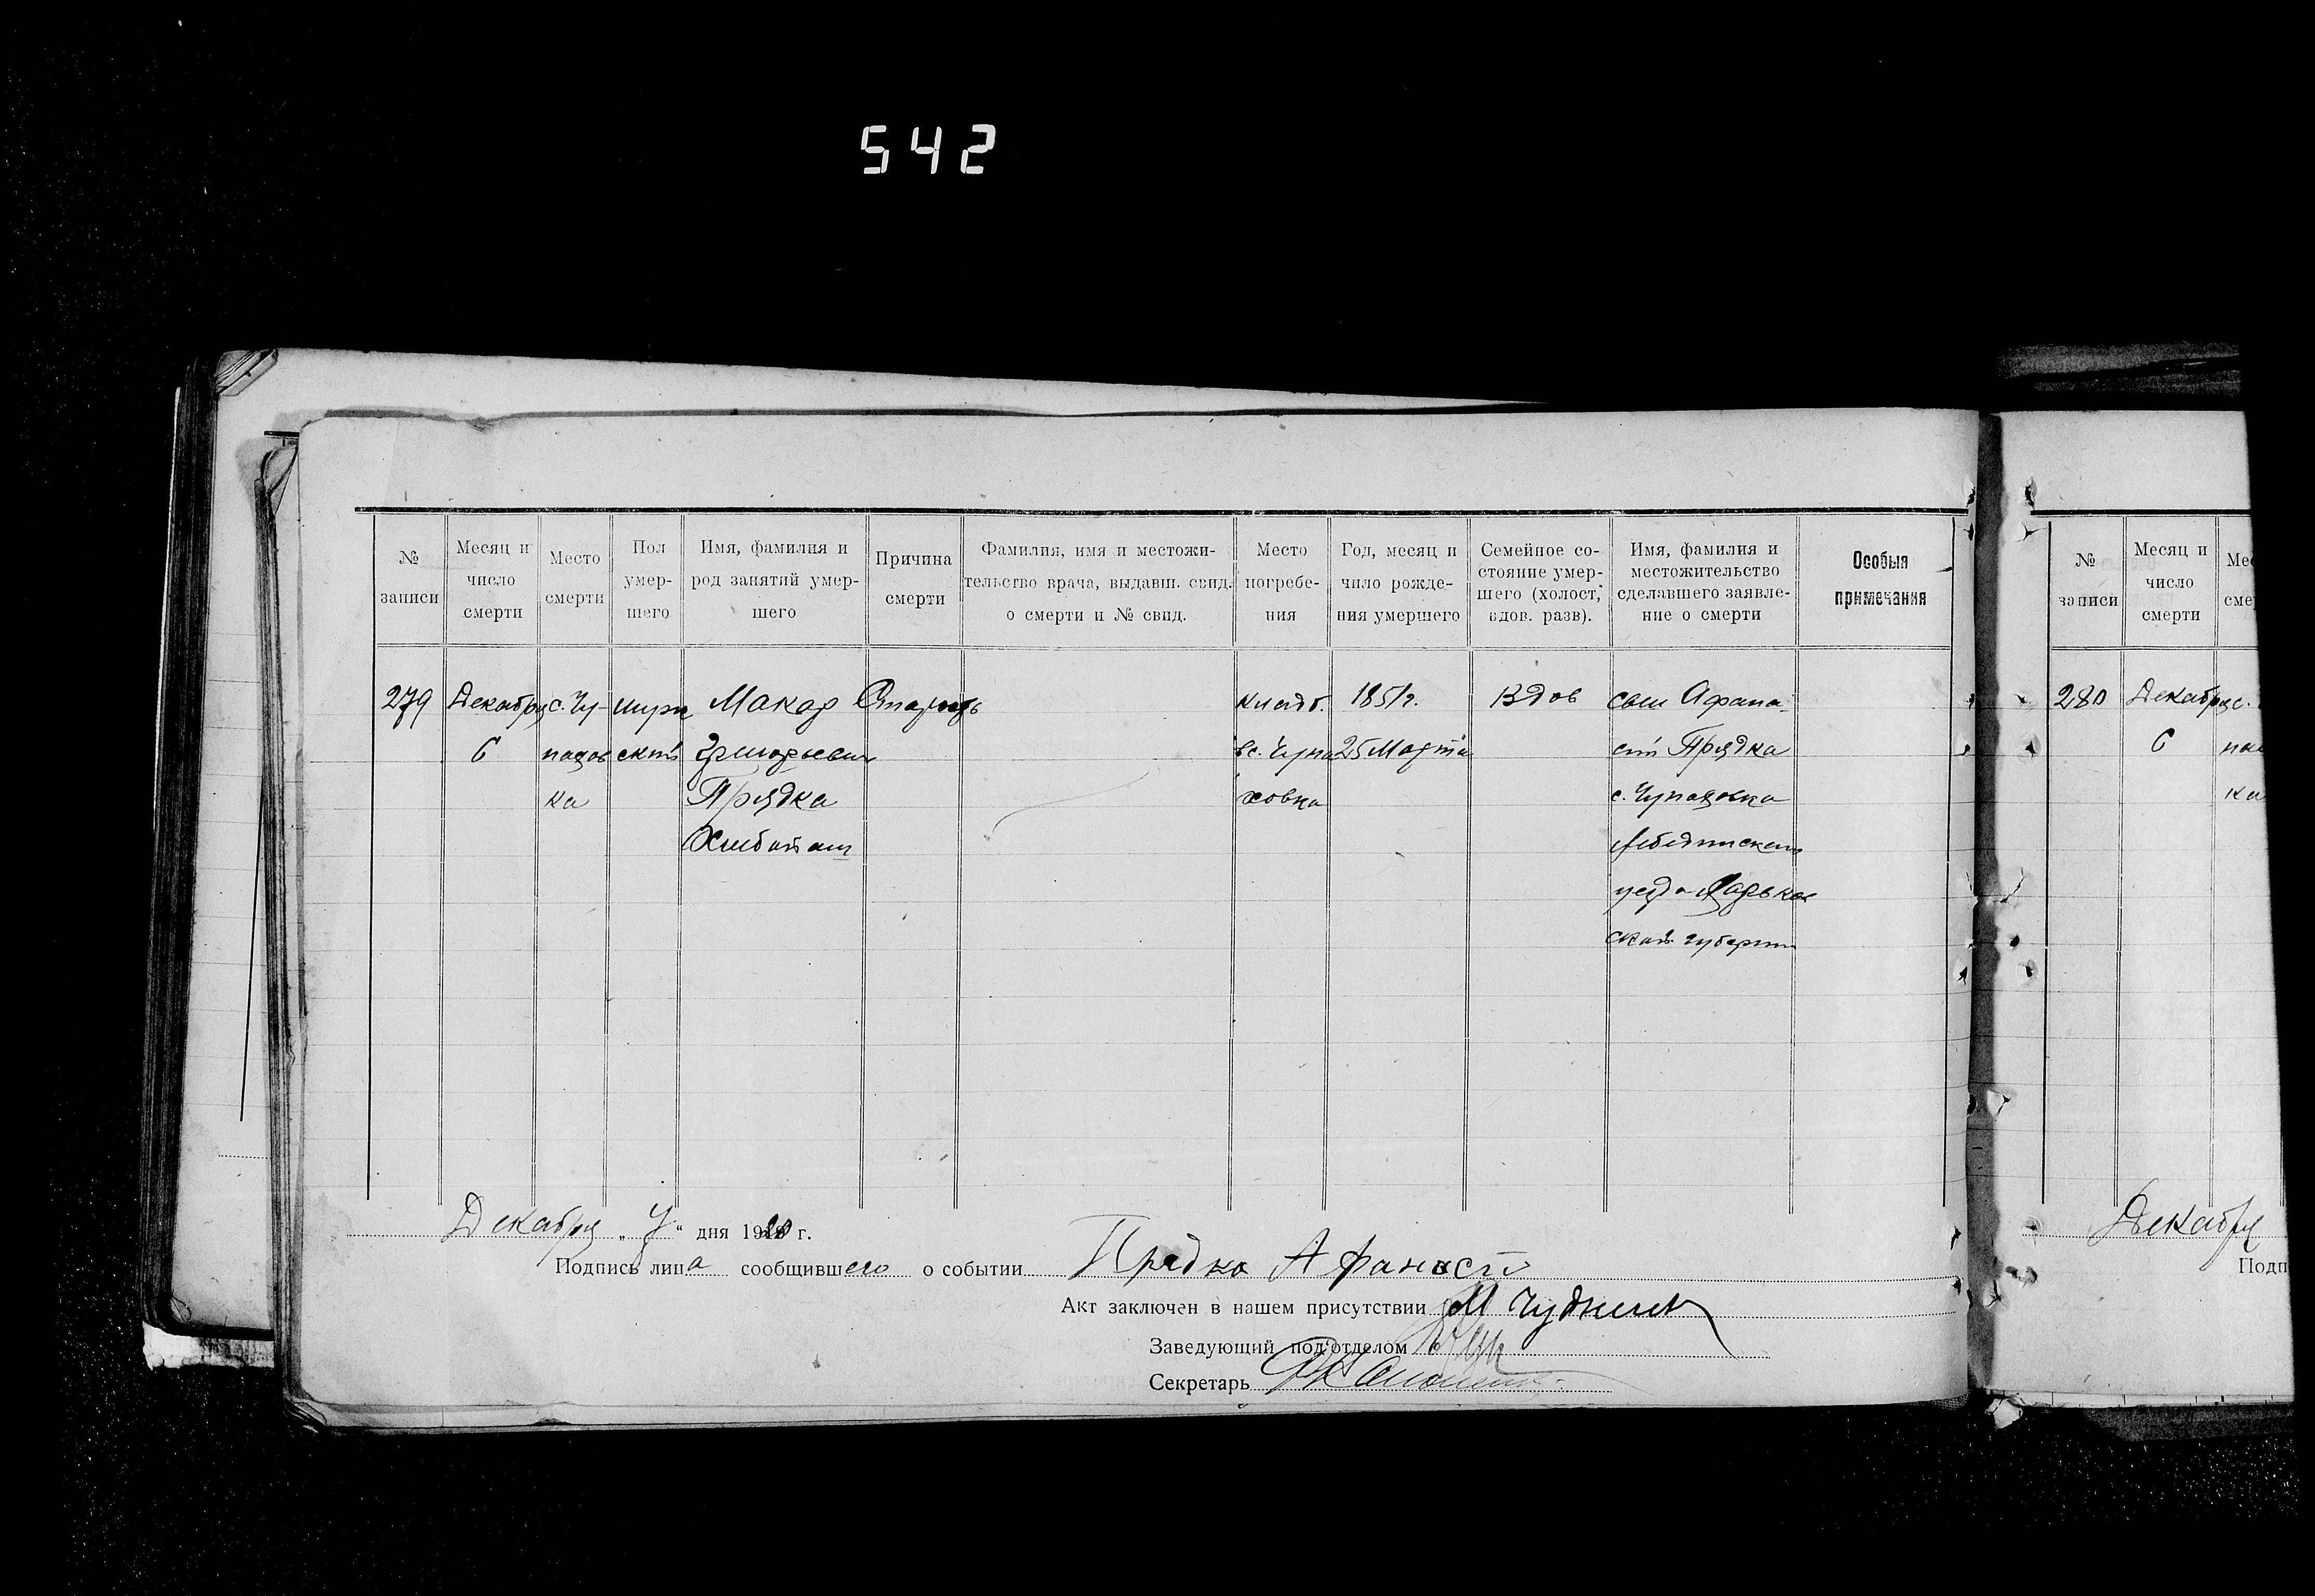 542
№ записи
Месяц и число смерти
Место смерти
Пол умер- шего
Имя, фамилия и род занятий умер- шего
Причина смерти
Фамилия, имя и местожи- тельство врача, выдавш. свид. о смерти и № свид.
Место погребе- ния
Год, месяц и число рожде- ния умершего
Семейное со- стояние умер- шего (холост, вдов. разв).
Имя, фамилия и местожительство сделавшего заявле- ние о смерти
Особыя примечания
279
Декабря
6
с. Чу-
пахов
ка
Макар
Григорьевич
Прядка
Хлебопаш
Старость
кладб.
в с. Чупа
ховка
1851 г.
25 Марта
Вдов
Афана-
сий Прядка
с. Чупаховка
Лебединскаго
уезда Харьков
ской губернии
Декабря „7“ дня 1920 г.
Подпись лица сообщившего о событии Прядка Афанасій
Акт заключен в нашем присутствии
Заведующий под'отделом
Секретарь
№ записи
Месяц и число смерти
280
Декабря
6
с.
па
ка
Декабря